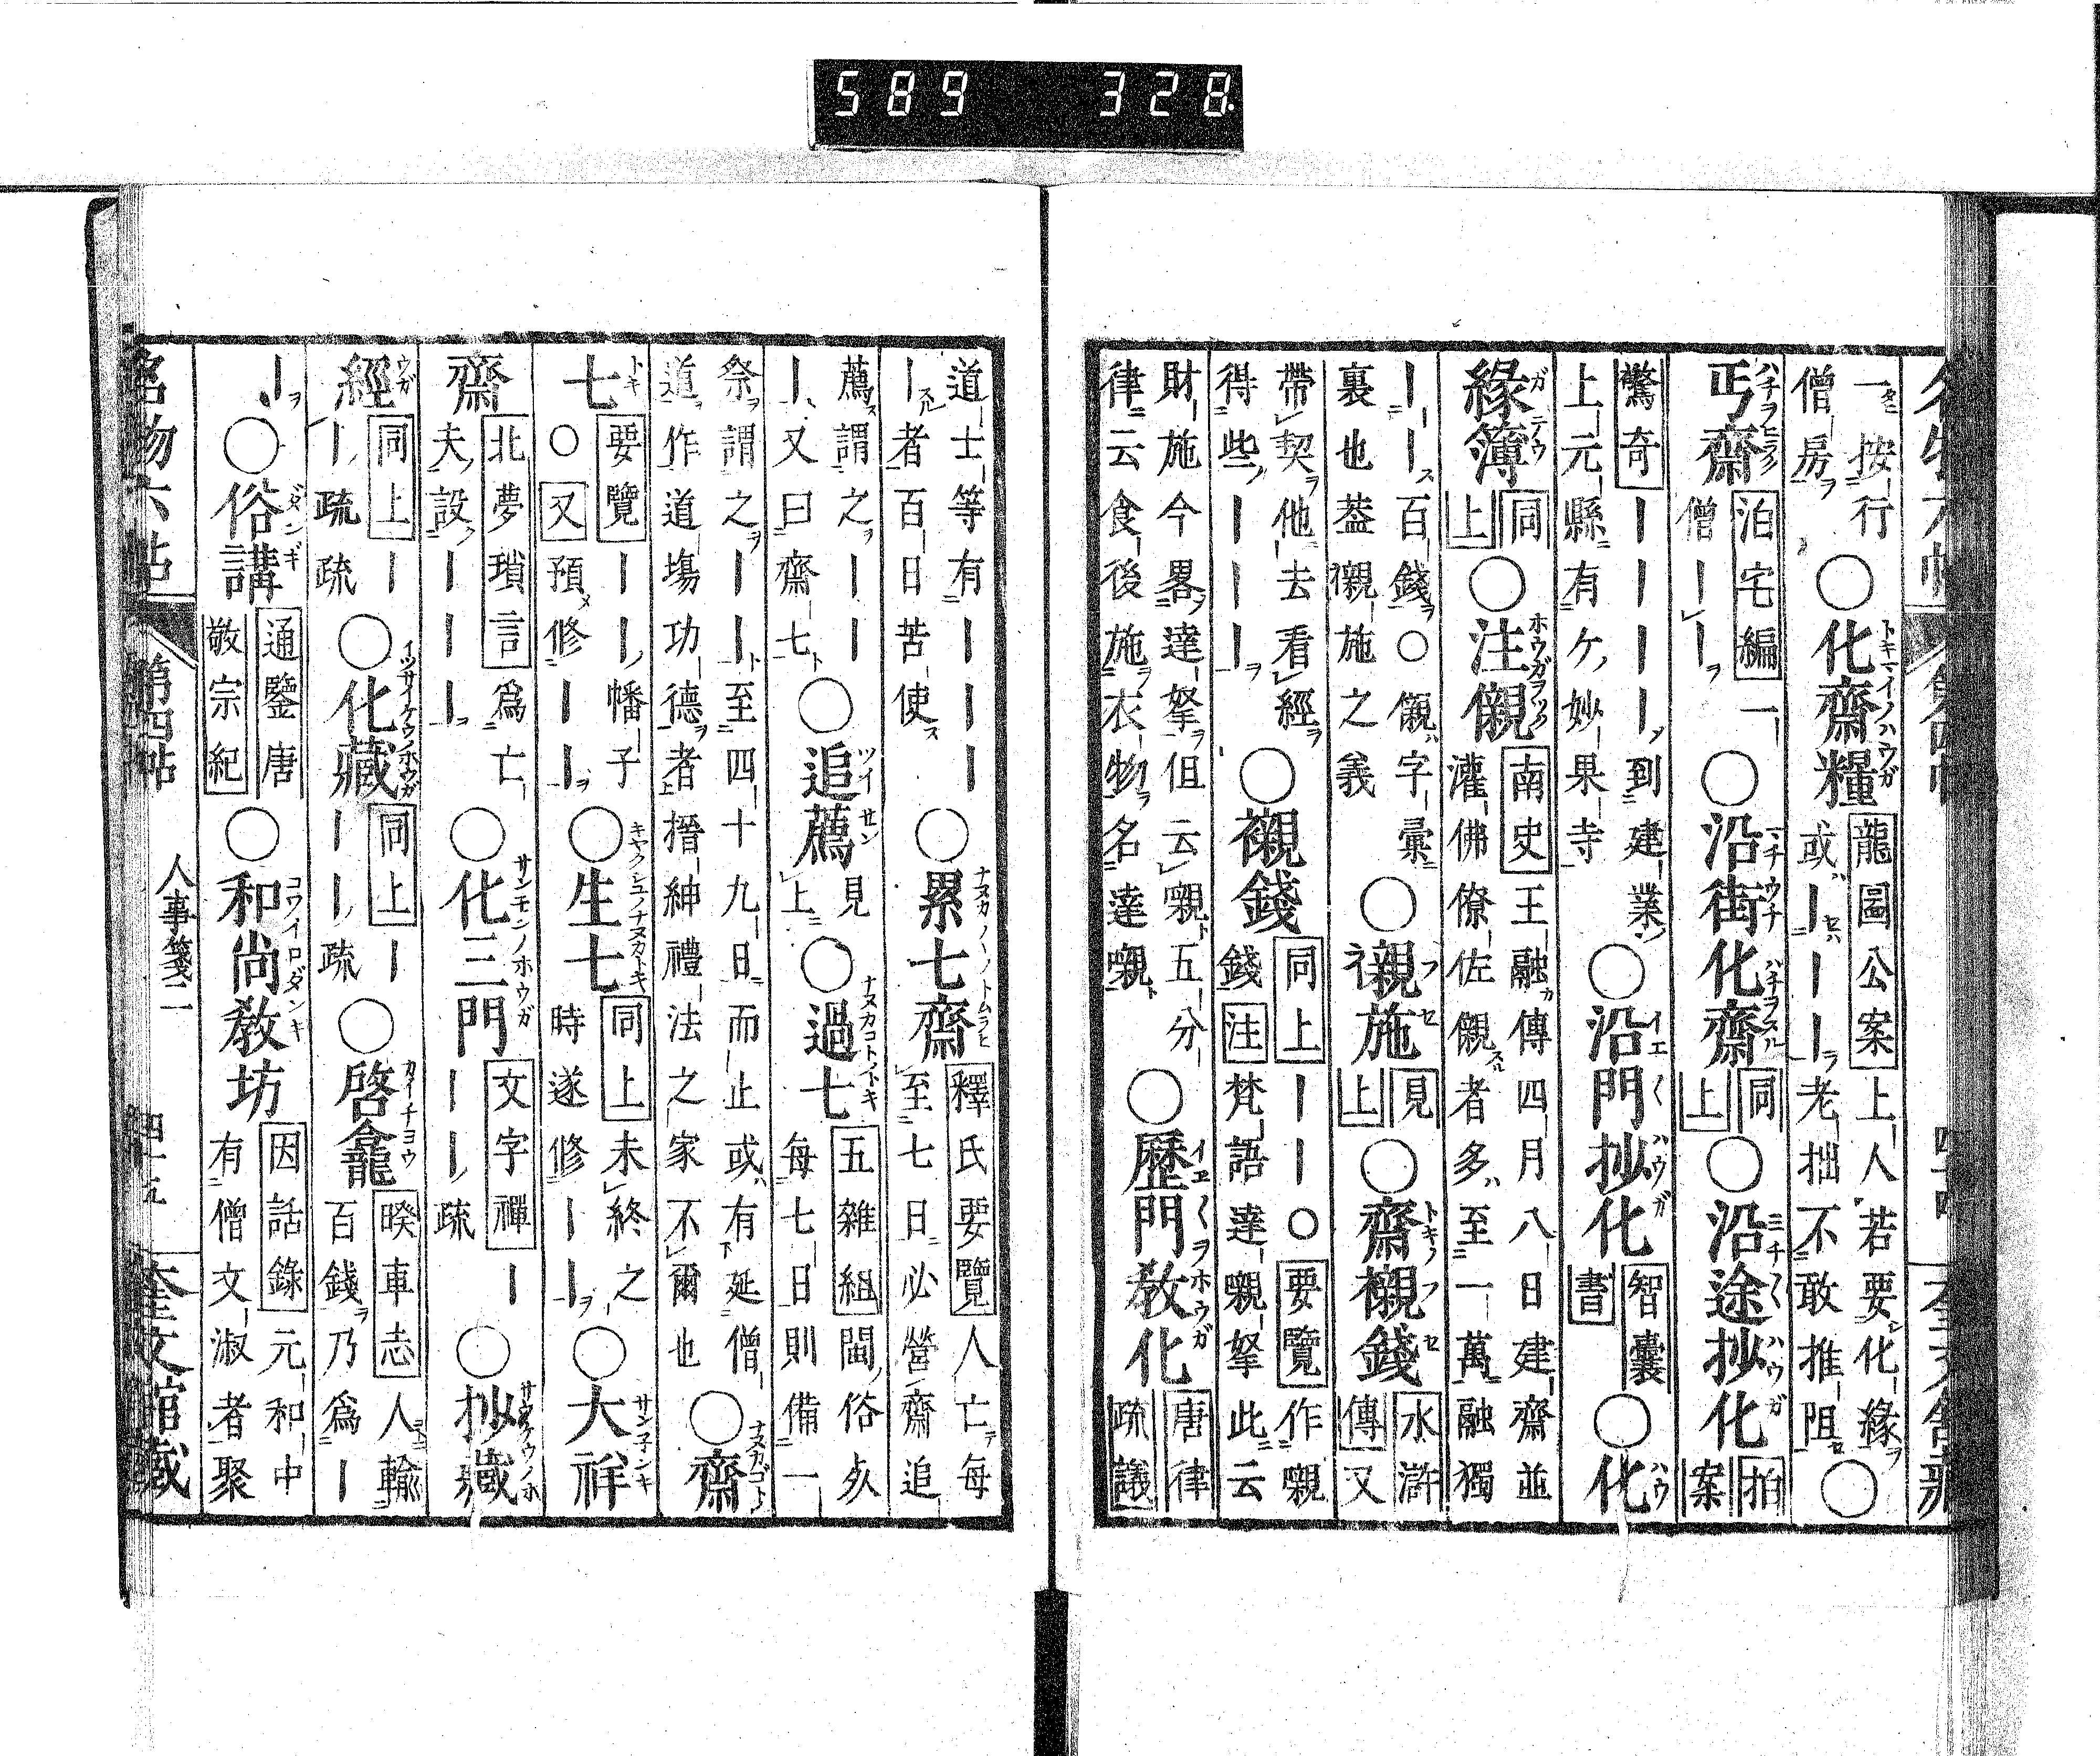 589 328
一按行僧房○化齋糧龍圖公案上人若要化緣或｜｜｜老拙不敢推阻○
丐齋泊宅編一僧｜｜○沿街化齋同上○沿途抄化拍案
驚奇｜｜｜｜到建業上元縣有ケ妙果寺○沿門抄化智囊書○化
緣簿同上○注儭南史王融傳四月八日建齋並灌佛僚佐儭者多至一萬融獨
｜｜百錢○儭字彙裏也葢嚫施之義○襯施見上○齋襯錢水滸傳又
帶契他去看經得些｜｜｜○襯錢同上｜｜○要覽作嚫錢注梵語達嚫拏此云
財施今畧達拏但云嚫五分律云食後施衣物名達嚫○歷門教化唐律疏議
道士等有｜｜｜｜者百日苦使○累七齋釋氏要覽人亡每至七日必營齋追
薦謂之｜｜｜又曰齋七○追薦見上○過七五雜組閩俗死每七日則備一
祭謂之｜｜至四十九日而止或有延僧道作道塲功德者搢紳禮法之家不爾也○齋
七要覽｜｜幡子○又預修｜｜○生七同上未終之時遂修｜｜○大祥
齋北夢瑣言爲亡夫設｜｜｜○化三門文字禪｜｜｜疏○抄藏
經同上｜｜疏疏○化藏同上｜｜｜疏○啓龕暌車志人輸百錢乃爲｜
｜○俗講通鑒唐敬宗紀○和尚教坊因話錄元和中有僧文淑者聚
名物六帖 第四帖 人事箋二 四十五 奎文館藏